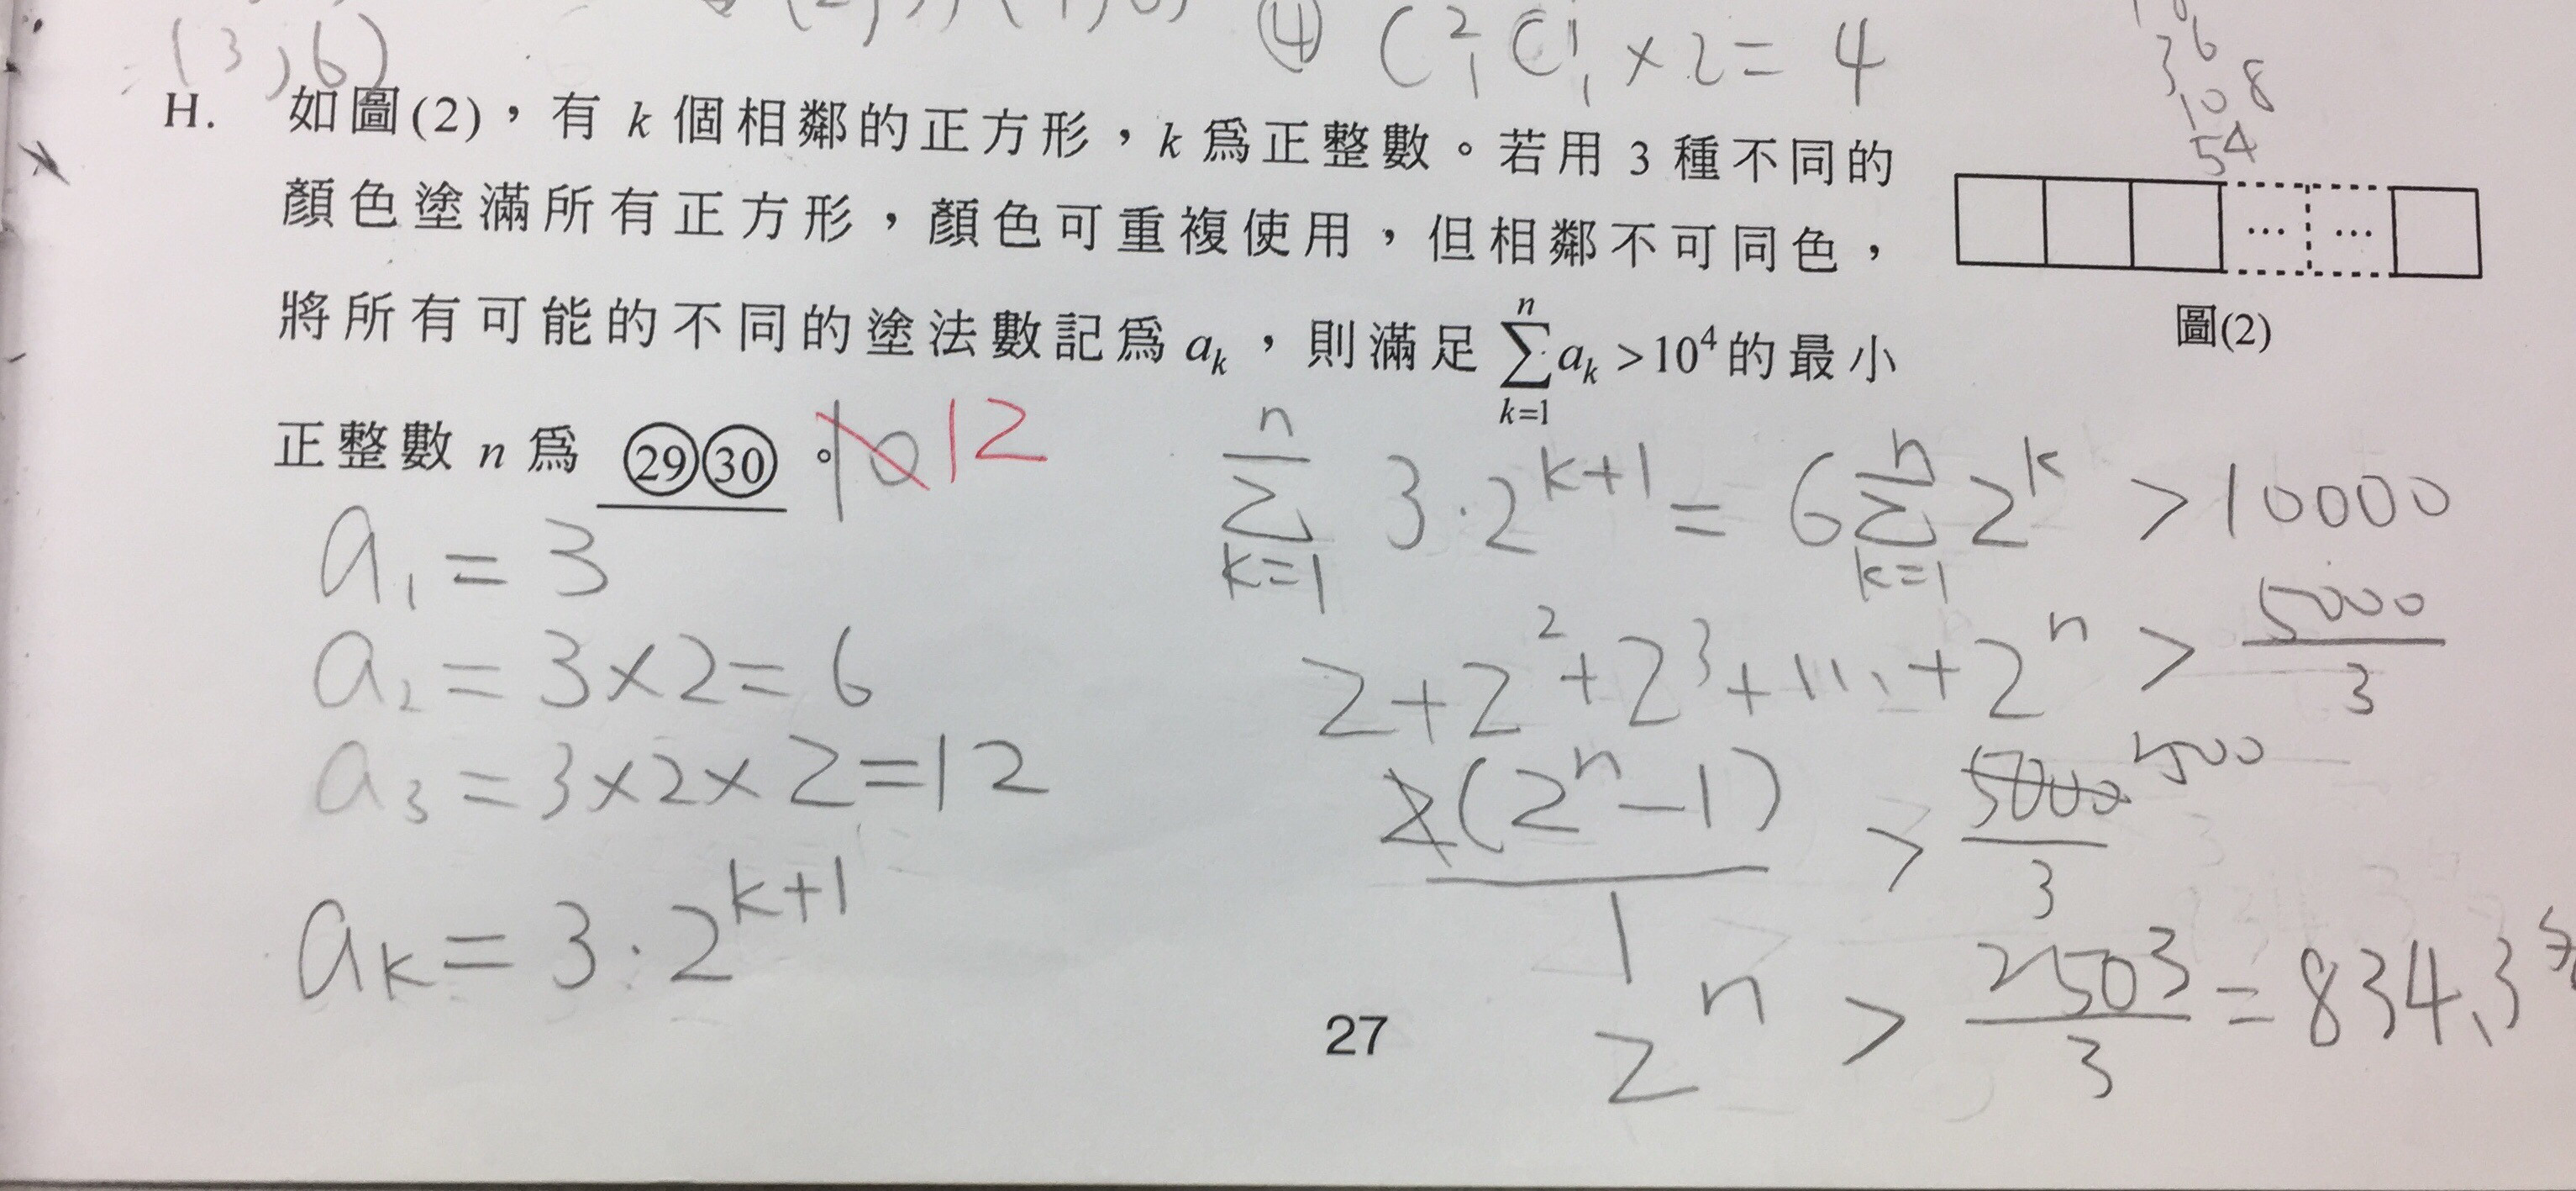 (3,6)
④ C²₁C¹₁×2=4
6
3
8
10
54
H. 如圖(2)，有 k 個相鄰的正方形，k 爲正整數。若用 3 種不同的
顏色塗滿所有正方形，顏色可重複使用，但相鄰不可同色，
將所有可能的不同的塗法數記爲 aₖ，則滿足 ∑ₖ₌₁ⁿ aₖ >10⁴ 的最小
正整數 n 爲 ㉙㉚ 。 10 12
… …
圖(2)
a₁ = 3
a₂ = 3×2= 6
a₃ = 3×2×2=12
aₖ = 3·2ᵏ⁺¹
∑ₖ₌₁ⁿ 3·2ᵏ⁺¹ = 6∑ₖ₌₁ⁿ 2ᵏ > 10000
2+2²+2³+...+2ⁿ > 5000/3
2(2ⁿ-1)/1 > 5000 2500/3
2ⁿ > 2503/3 = 834.3
27